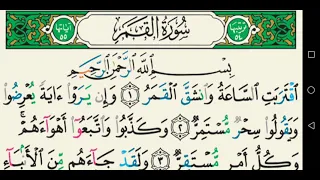 ترتيبها ٥٤ سُورَةُ القَمَرِ آياتها ٥٥
بِسْمِ اللَّهِ الرَّحْمَٰنِ الرَّحِيمِ
ٱقْتَرَبَتِ ٱلسَّاعَةُ وَٱنشَقَّ ٱلْقَمَرُ ١ وَإِن يَرَوْا۟ ءَايَةً يُعْرِضُوا۟
وَيَقُولُوا۟ سِحْرٌ مُّسْتَمِرٌّ ٢ وَكَذَّبُوا۟ وَٱتَّبَعُوٓا۟ أَهْوَآءَهُمْ ۚ
وَكُلُّ أَمْرٍ مُّسْتَقِرٌّ ٣ وَلَقَدْ جَآءَهُم مِّنَ ٱلْأَنۢبَآءِ